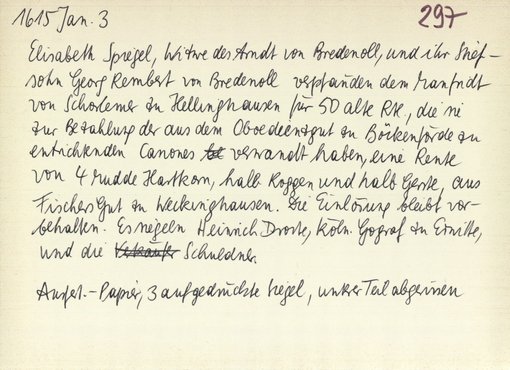 1615 Jan. 3
297
Elisabeth Spiegel, Witwe des Arndt von Bredenoll, und ihr Stief-
sohn Georg Rembert von Bredenoll verpfänden dem Manfridt
von Schorlemer zu Hellinghausen für 50 alte Rt., die sie
zur Bezahlung der aus dem Oboedienzgut zu Böckenförde zu
entrichtenden Canones verwandt haben, eine Rente
von 4 Mudde Hartkorn, halb Roggen und halb Gerste, aus
Fischers Gut zu Weckinghausen. Die Einlösung bleibt vor-
behalten. Es siegeln Heinrich Droste, köln. Gograf zu Erwitte,
und die Schuldner.
Ausfert.-Papier, 3 aufgedrückte Siegel, unterer Teil abgerissen